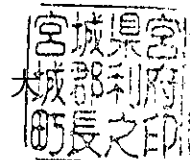 宮城県宮
城郡利府
町長之印
大